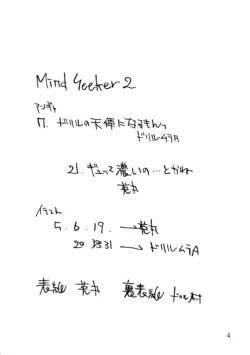 Mind Seeker 2
マンガ
17. ドリルの天使になるもんっ
ドリルムラA
21. ギュって濃いの…とかね
英丸
イラスト
5. 6. 19. → 英丸
20 31 → ドリルムラA
表紙 英丸 裏表紙 ドリル村
4